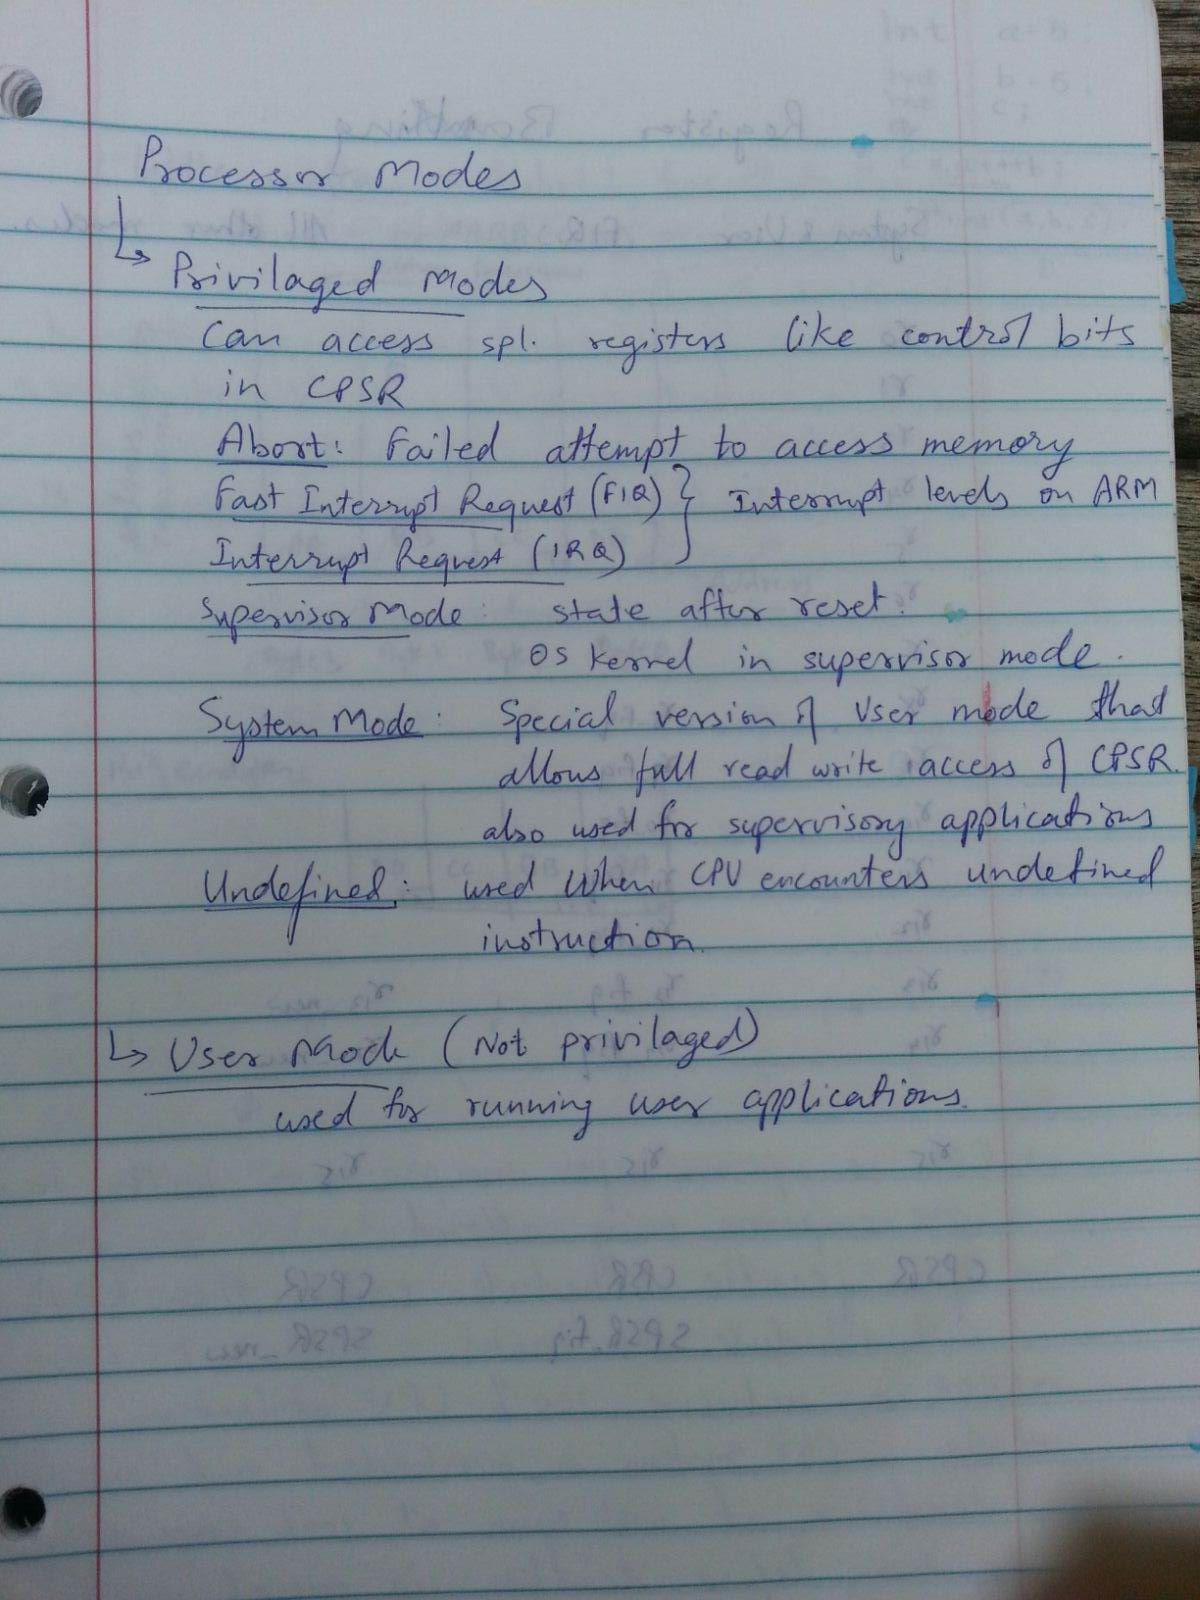 Processor Modes
↳ Privilaged Modes
Can access spl. registers like control bits
in CPSR
Abort: Failed attempt to access memory
Fast Interrupt Request (FIQ) } Interrupt levels on ARM
Interrupt Request (IRQ)
Supervisor Mode: state after reset.
OS kernel in supervisor mode.
System Mode: Special version of User mode that
allows full read write access of CPSR.
also used for supervisory applications
Undefined: used when CPU encounters undefined
instruction.
↳ User Mode (Not privilaged)
used for running user applications.